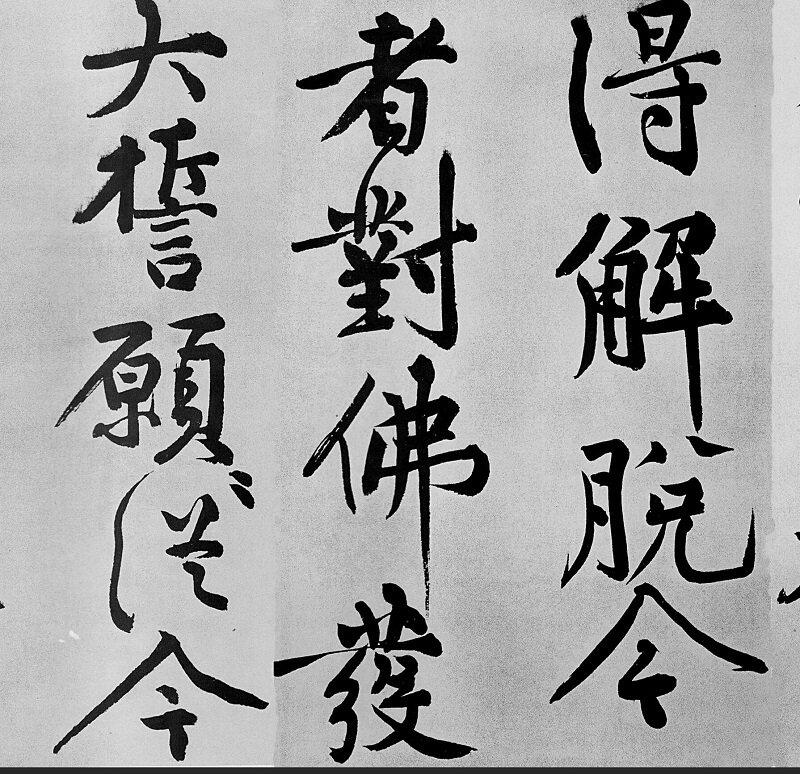 得解脱今
者對佛發
大誓願從今